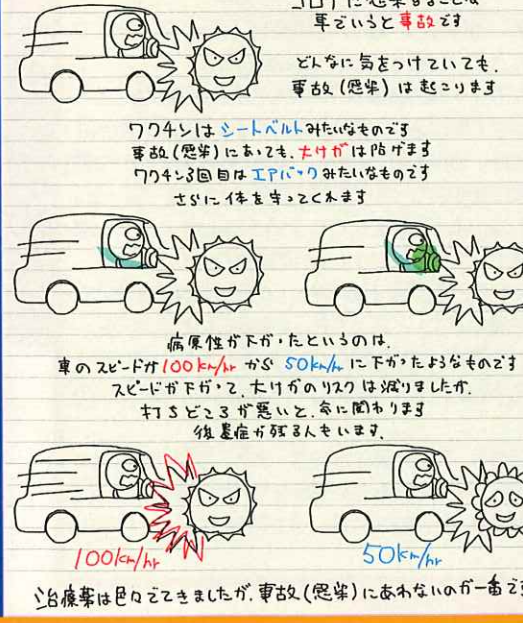 コロナに感染することは
車でいうと事故です
どんなに気をつけていても、
事故(感染)は起こります
ワクチンはシートベルトみたいなものです
事故(感染)にあっても、大けがは防げます
ワクチン3回目はエアバックみたいなものです
さらに体を守ってくれます
病原性が下がったというのは、
車のスピードが100km/hrから50km/hrに下がったようなものです
スピードが下がって、大けがのリスクは減りましたが、
打ちどころが悪いと、命に関わります
後遺症が残る人もいます。
100km/hr
50km/hr
治療薬は色々でてきましたが、事故(感染)にあわないのが一番です